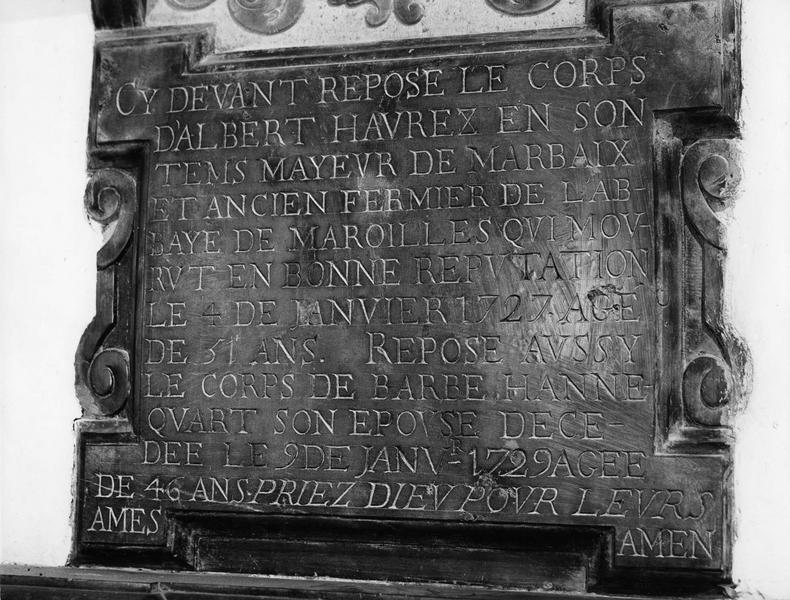 CY DEVANT REPOSE LE CORPS
D'ALBERT HAVREZ EN SON
TEMS MAYEVR DE MARBAIX
ET ANCIEN FERMIER DE L'AB-
BAYE DE MAROILLES QVI MOV-
RVT EN BONNE REPVTATION
LE 4 DE JANVIER 1727 AGE
DE 51 ANS. REPOSE AVSSY
LE CORPS DE BARBE HANNE-
QVART SON EPOVSE DECE-
DEE LE 9 DE JANVR 1729 AGEE
DE 46 ANS. PRIEZ DIEV POVR LEVRS
AMES AMEN